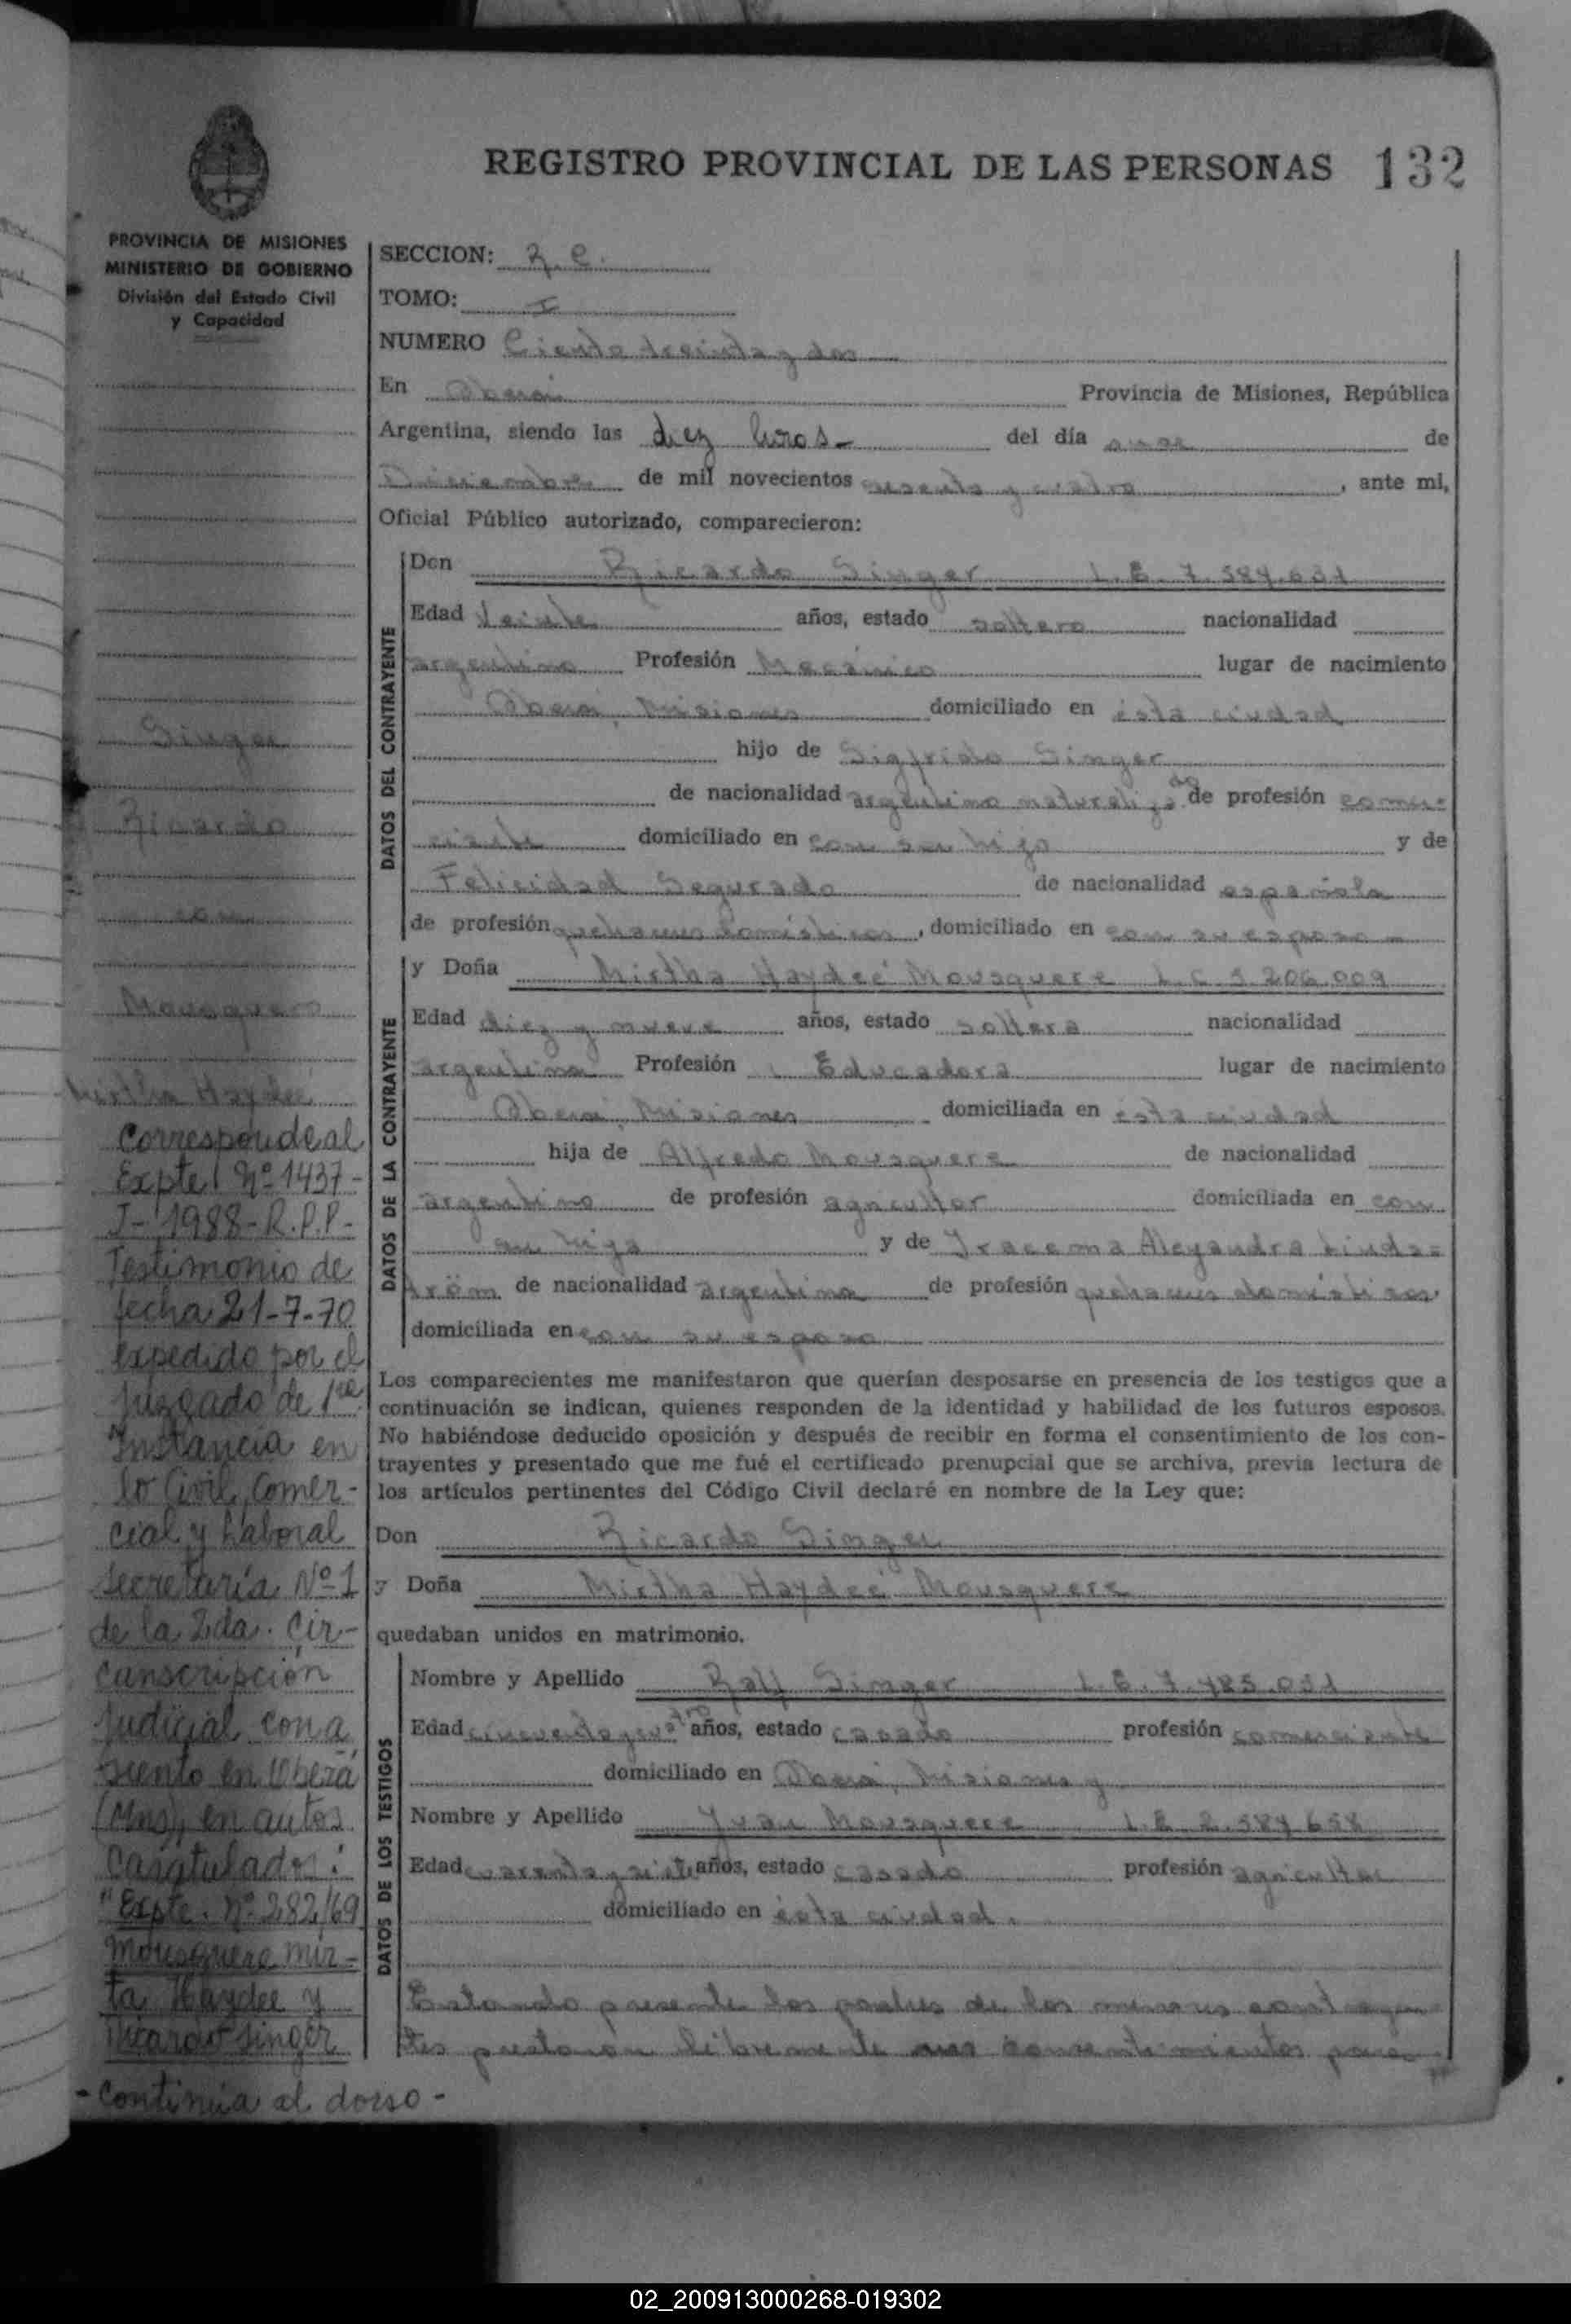 REGISTRO PROVINCIAL DE LAS PERSONAS 132
PROVINCIA DE MISIONES
MINISTERIO DE GOBIERNO
División del Estado Civil
y Capacidad
SECCION: R.C.
TOMO: I
NUMERO Ciento treinta y dos
En Oberá Provincia de Misiones, República
Argentina, siendo las diez horas- del día once de
Diciembre de mil novecientos sesenta y cuatro, ante mi,
Oficial Público autorizado, comparecieron:
DATOS DEL CONTRAYENTE
Don Ricardo Singer L.E. 7.584.631
Edad Veinte años, estado soltero nacionalidad
argentino Profesión Mecánico lugar de nacimiento
Oberá, Misiones domiciliado en ésta ciudad
hijo de Sigfrido Singer
de nacionalidad argentino naturalizado de profesión comer-
ciante domiciliado en con su hijo y de
Felicidad Segurado de nacionalidad española
de profesión quehaceres domésticos, domiciliado en con su esposo -
DATOS DE LA CONTRAYENTE
y Doña Mirtha Haydeé Mousquere L.C. 5.206.009
Edad diez y nueve años, estado soltera nacionalidad
argentina Profesión Educadora lugar de nacimiento
Oberá, Misiones domiciliada en ésta ciudad
hija de Alfredo Mousquere de nacionalidad
argentino de profesión agricultor domiciliada en con
su hija y de Iracema Aleyandra Linds=
tröm de nacionalidad argentina de profesión quehaceres domésticos.
domiciliada en con su esposo
Los comparecientes me manifestaron que querían desposarse en presencia de los testigos que a
continuación se indican, quienes responden de la identidad y habilidad de los futuros esposos.
No habiéndose deducido oposición y después de recibir en forma el consentimiento de los con-
trayentes y presentado que me fué el certificado prenupcial que se archiva, previa lectura de
los artículos pertinentes del Código Civil declaré en nombre de la Ley que:
Don Ricardo Singer
y Doña Mirtha Haydeé Mousquere
quedaban unidos en matrimonio.
DATOS DE LOS TESTIGOS
Nombre y Apellido Ralf Singer L.E. 7.485.031
Edad cincuenta y cuatro años, estado casado profesión comerciante
domiciliado en Oberá, Misiones y
Nombre y Apellido Yvan Mousquere L.E. 2.584.658
Edad cuarenta y siete años, estado casado profesión agricultor
domiciliado en ésta ciudad.
Estando presente los padres de los menores contrayen
tes prestaron libremente sus consentimientos para
Singer
Ricardo
con
Mousquere
Mirtha Haydeé
Corresponde al
Expte. Nº 1437-
J-1988-R.P.P.-
Testimonio de
fecha 21-7-70
expedido por el
Juzgado de 1ra
Instancia en
lo Civil, Comer-
cial y Laboral
Secretaría Nº 1
de la 2da. Cir-
cunscripción
Judicial con a
siento en Oberá
(Mns), en autos
Caratulado:
"Expte. Nº 282/69
Mousquere Mir-
ta Haydee y
Ricardo Singer
- Continúa al dorso -
02_200913000268-019302